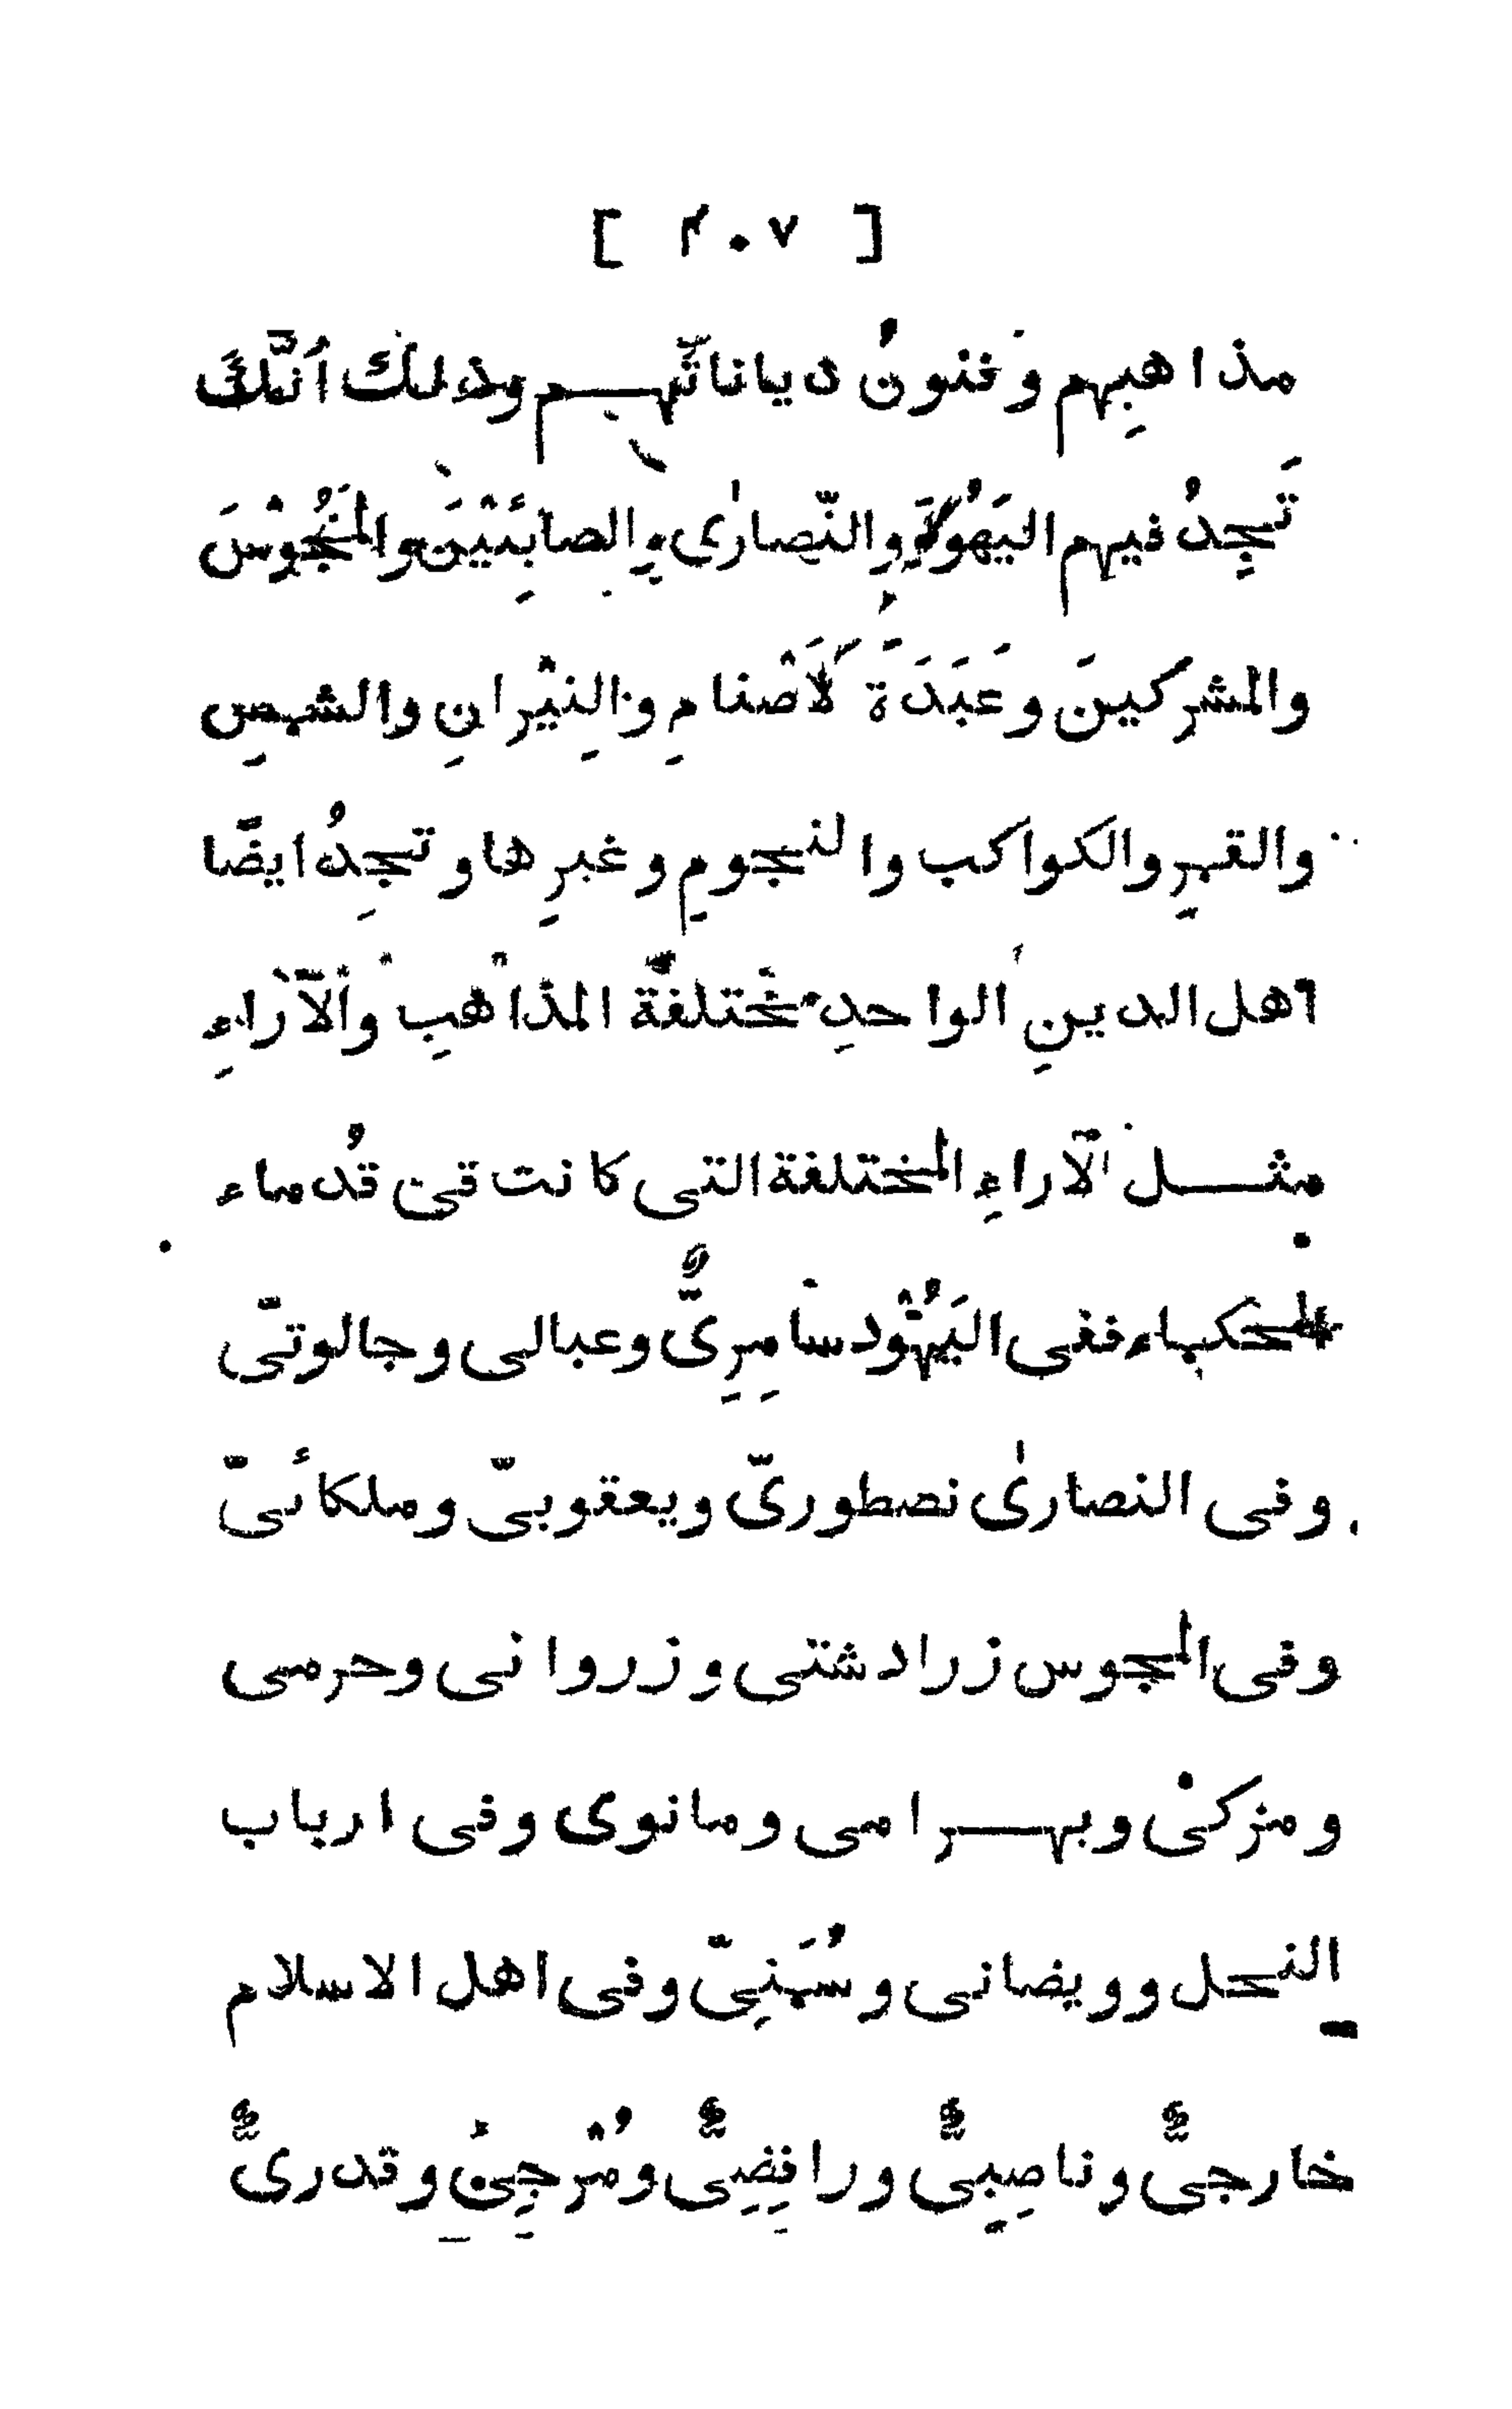 [ ۴۰۷ ]
مذاهِبِهم وَفنونُ دياناتِّهم وذلك اَنَّكَ
تَجِدُ فيهم اليَهُوْدَ والنّصارٰى والصابِئيْنَ والمَجُوْسَ
والمشرِكينَ وعَبَدَةَ لاَصْنامِ والنِيْرانِ والشمسِ
والقمرِ والكواكب والنجومِ وغيرِها وتجِدُ ايضًا
اهل الدينِ الواحدِ مختلفةَ المذاهبِ والآراءِ
مثل الآراءِ المختلفة التى كانت فى قُدماء
الحكماء ففى اليَهُوْد سامِرِىٌّ وعبالى وجالوتىّ
وفى النصارىٰ نصطورىّ ويعقوبىّ وملكائىّ
وفى المجوس زرادشتى وزروانى وحرمسى
ومزكىْ وبهرامى ومانوى وفى ارباب
النحل وويضانى وسُمَنِىّ وفى اهل الاسلام
خارجىٌّ وناصِبىٌّ ورافِضِىٌّ ومُرْجِئ وقدرىٌّ